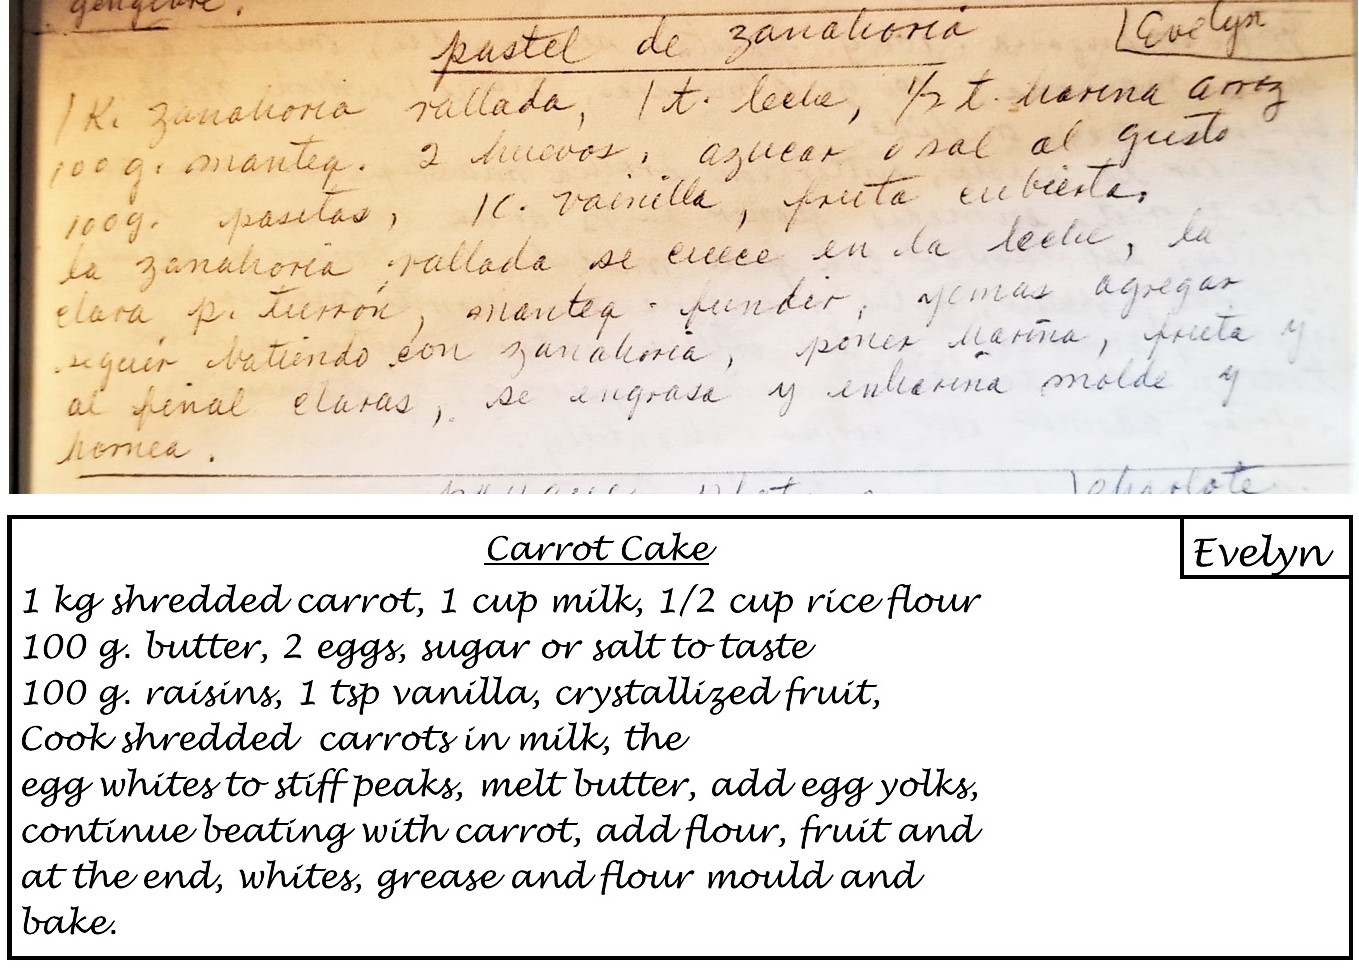 gengibre.
pastel de zanahoria
Evelyn
1 K. zanahoria rallada, 1 t. leche, 1/2 t. harina arroz
100 g. manteq. 2 huevos, azucar o sal al gusto
100g. pasitas, 1 c. vainilla, fruta cubierta,
la zanahoria rallada se cuece en la leche, la
clara p. turrón, manteq. fundir, yemas agregar
seguir batiendo con zanahoria, poner harina, fruta y
al final claras, se engrasa y enharina molde y
hornea.
charlote
Carrot Cake
Evelyn
1 kg shredded carrot, 1 cup milk, 1/2 cup rice flour
100 g. butter, 2 eggs, sugar or salt to taste
100 g. raisins, 1 tsp vanilla, crystallized fruit,
Cook shredded carrots in milk, the
egg whites to stiff peaks, melt butter, add egg yolks,
continue beating with carrot, add flour, fruit and
at the end, whites, grease and flour mould and
bake.